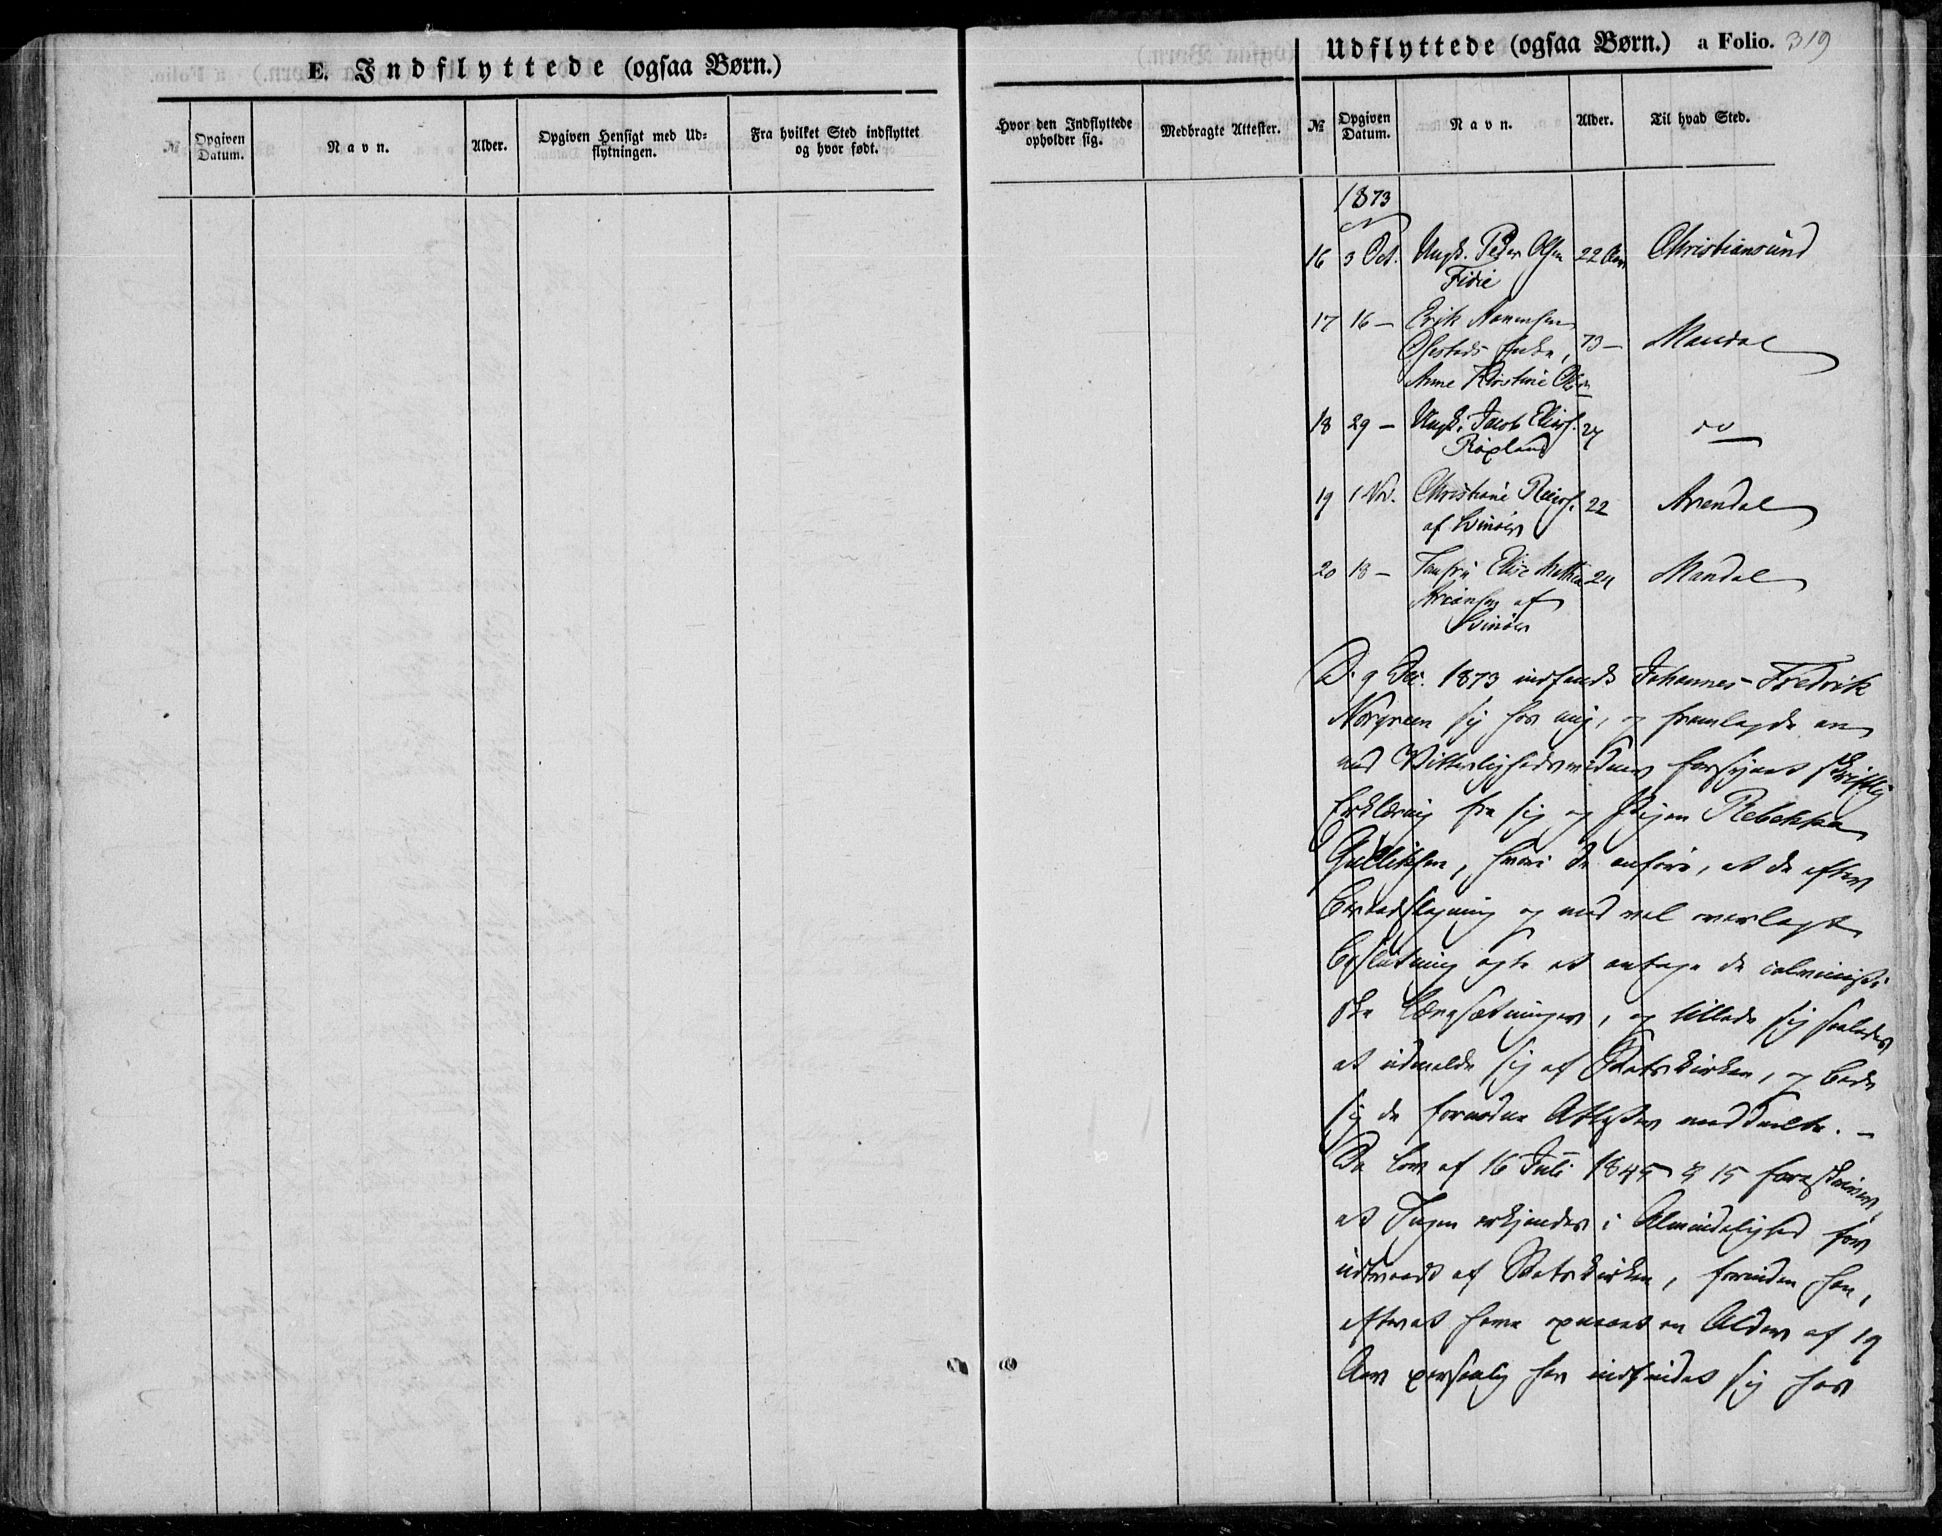 E. Indflyttede (ogsaa Børn.)
№
Opgiven Datum.
Navn.
Alder.
Opgiven Hensigt med Ud=
flytningen.
Fra hvilket Sted indflyttet
og hvor født.
Udflyttede (ogsaa Børn.) a Folio. 319
Hvor den Indflyttede
opholder sig.
Medbragte Attester.
№
Opgiven Datum.
Navn.
Alder.
Til hvad Sted.
1873
16 3 Oct. Ungk. Peder Olsen 22 Aar Christiansund
17 16 – Erik
Enke, 73 – Mandal
Anne Kirstine
18 29 – Ungk. Jacob 27 do
Røxland
19 1 Nov. Christiane 22 Arendal
af Svinøer
20 18 – Jomfru Elise 24 Mandal
af
Svinøer
D. 9 Dec. 1873 indfandt Johannes Fredrik
Norgreen sig hos mig, og fremlagde en
med Vitterlighedsvidner forsynet skriftlig
Erklæring fra sig og Pigen Rebekka
Gullichsen, hvori de anføre, at de efter
Beraadslagning og med vel overlagt
Beslutning agte at antage de calvinisti
ske Læresætninger, og tillade sig saaledes
at udmelde sig af Statskirken, og bede
sig de fornødne Attester meddeelte. –
Da Lov af 16 Juli 1845 § 15 foreskriver,
at Ingen erkjendes i Almindelighed for
udtraadt af Statskirken, forinden han,
efterat have opnaaet en Alder af 19
Aar personlig har indfundet sig hos